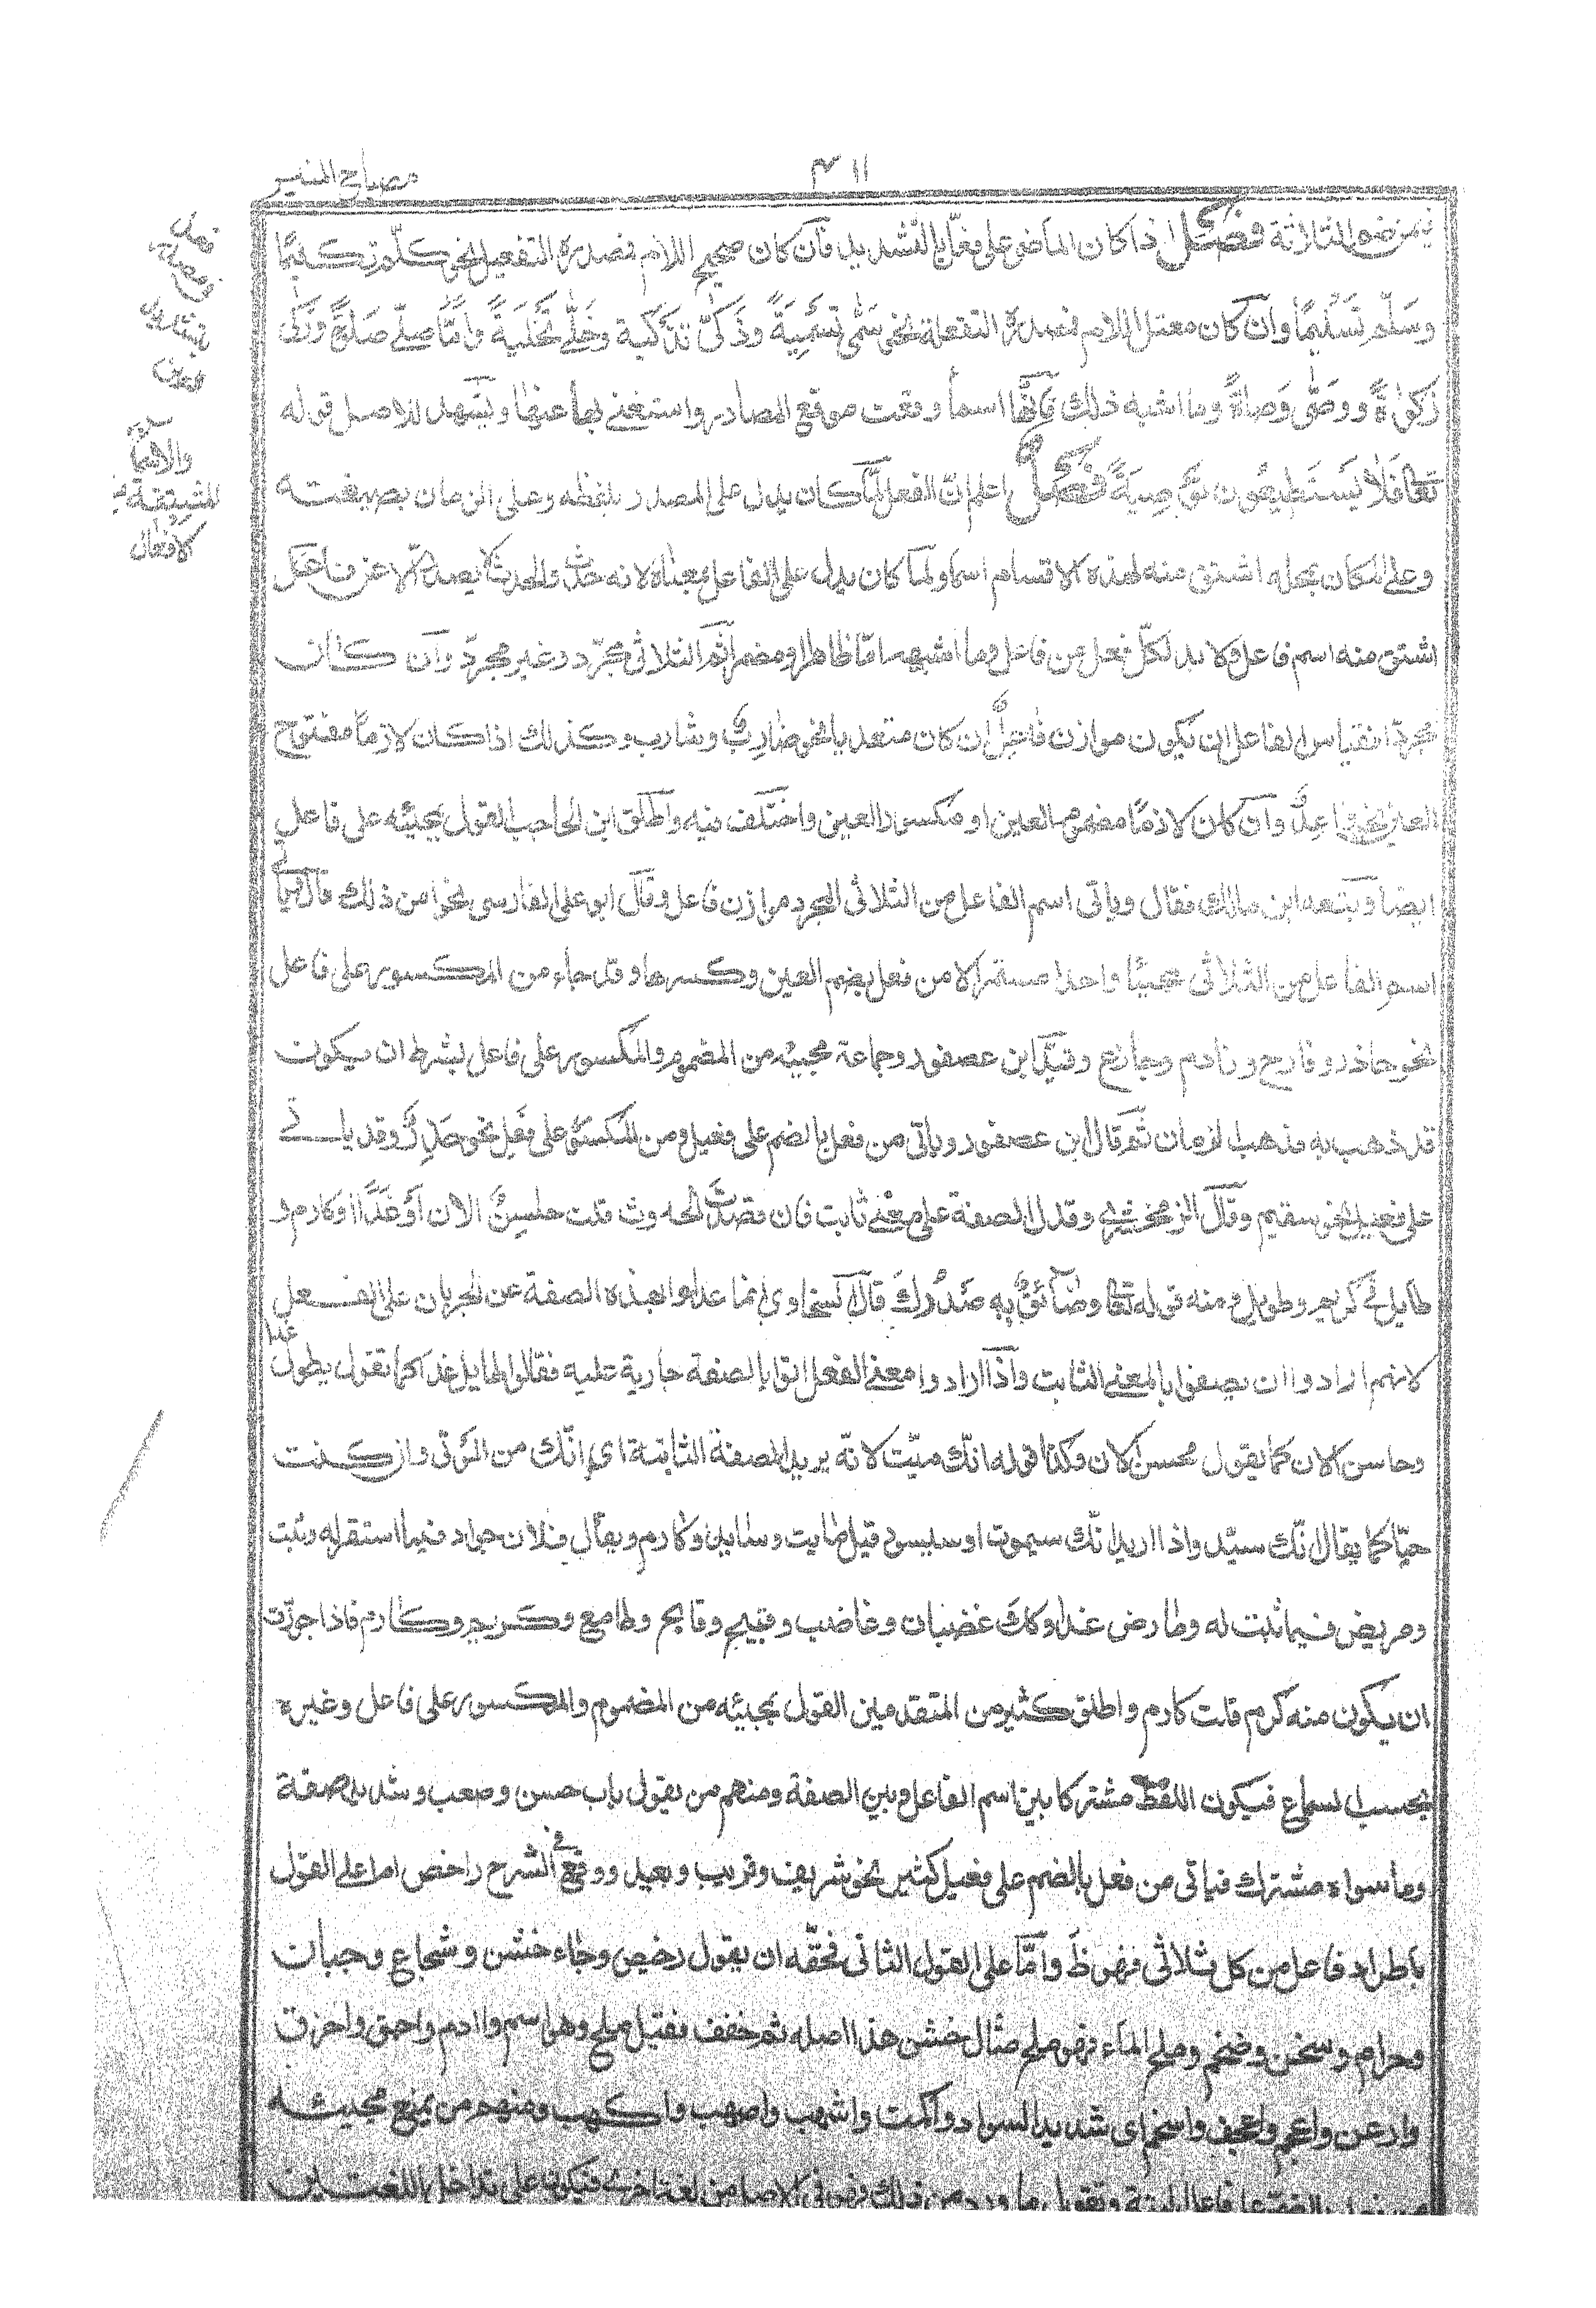 مصباح المنير
فيمن ضم الثلاثة فصل اذا كان الماضى على فعّل بالتشديد فان كان صحيح اللام فمصدره التفعيل نحو كلّم تكليمًا
وسَلّم تَسْلِيمًا وان كان معتل اللام فمصدره التفعلة نحو سَمّى تَسْمِيَةً وذَكّى تَذْكِيَة وخَلّى تَخْلِيَةً وامّا صلّى صَلوةً وزَكّى
زَكوٰةً ووَصّى وَصاةً وما اشبه ذلك فانّها اسماء وقعت موقع المصادر واستغنى بها عنها ويشهد للاصل قوله
تعالى فَلَا يَسْتَطِيعُونَ تَوْصِيَةً فصل اعلم انّ الفعل لمّا كان يدل على المصدر بلفظه وعلى الزمان بصيغته
وعلى المكان بمحله اشتق منه لهذه الاقسام اسماء ولمّا كان يدل على الفاعل بمعناه لانه حدث والحدث لا يصدر الا عن فاعل
اشتق منه اسم فاعل ولا بد لكلّ فعل من فاعل وما اشبهه امّا ظاهرا ومضمرا ثم الثلاثى مجرّد وغير مجرد وان كان
مجردا فقياس الفاعل ان يكون موازن فاعِلٌ ان كان متعديا نحو ضارِبٌ وشارب وكذلك اذا كان لازما مفتوح
العين نحو قاعِدٌ وان كان لازمًا مضموم العين او مكسور العين واختلف فيه واطلق ابن الحاجب القول بمجيئه على فاعل
ايضا وتبعه ابن مالك فقال وياتى اسم الفاعل من الثلاثى المجرد موازن فاعل وقال ابو على الفارسى نحوا من ذلك قال وياتى
اسم الفاعل من الثلاثى مجيئا واحدا مستمرا الا من فعل بضم العين وكسرها وقد جاء من المكسور على فاعل
نحو حاذر وفارح ونادم وجارح وقيّد ابن عصفور وجماعة مجيئه من المضموم والمكسور على فاعل بشرط ان يكون
قد ذهب به مذهب الزمان ثم قال ابن عصفور وياتى من فعل بالضم على فعيل ومن المكسور على فَعِل نحو حَذِرٌ وقد ياتى
على فعيل نحو سقيم وقال الزمخشرى وتدل الصفة على معنى ثابت فان قصدت الحدوث قلت حاسِنٌ الان اَوْ غَدًا او كارم و
طايل فى كريم وطويل ومنه قوله تعالى وضائقٌ بِهِ صَدْرُكَ قال السخاوى انما عدلوا بهذه الصفة عن الجريان على الفعل
لانهم ارادوا ان يصفوا بالمعنى الثابت واذا ارادوا معنى الفعل اتوا بالصفة جارية عليه فقالوا طايل غدا كما تقول يطول غدا
وحاسن الان كما يقول محسن الان وكذا قوله انك ميّت لانّه يريد الصفة الثابتة اى انّك من الموتى وان كنت
حيّا كما يقال انّك سيّد واذا اريد انّك سيموت او سيسود قيل مايت وسايد وكارم ويقال فلان جواد فيما استقر له وثبت
ومريض فيما ثبت له ومارض غدا وكذلك غضبان وغاضب وقبيح وقابح وطامع وكريم وكارم فاذا جوّزت
ان يكون منه كرم قلت كارم واطلق كثير من المتقدمين القول بمجيئه من المضموم والمكسور على فاعل وغيره
بحسب السماع فيكون اللفظ مشتركا بين اسم الفاعل وبين الصفة ومنهم من يقول باب حسن وصعب وشديد صفة
وما سواه مشترك فياتى من فعل بالضم على فعيل كثير نحو شريف وقريب وبعيد ووقع فى الشرح راخص اما على القول
باطراد فاعل من كل ثلاثى فهو ظ وامّا على القول الثانى فحقّه ان يقول رخيص وجاء خشن وشجاع وجبان
وحرام وسخن وضخم وملح الماء فهو ملح مثال خشن هذا اصله ثم خفف فقيل ملح وهو اسم وادم واحمق واخرق
وارعن واعجم واعجف واسخم اى شديد السواد واكمت واشهب واصهب واكهب ومنهم من يمنع مجيئه
من فعل بالضم على فاعل البتة ويقول ما ورد من ذلك فهو فى الاصل من لغة اخرى فيكون على تداخل اللغتين
والاسماء
المشتقة من
الافعال